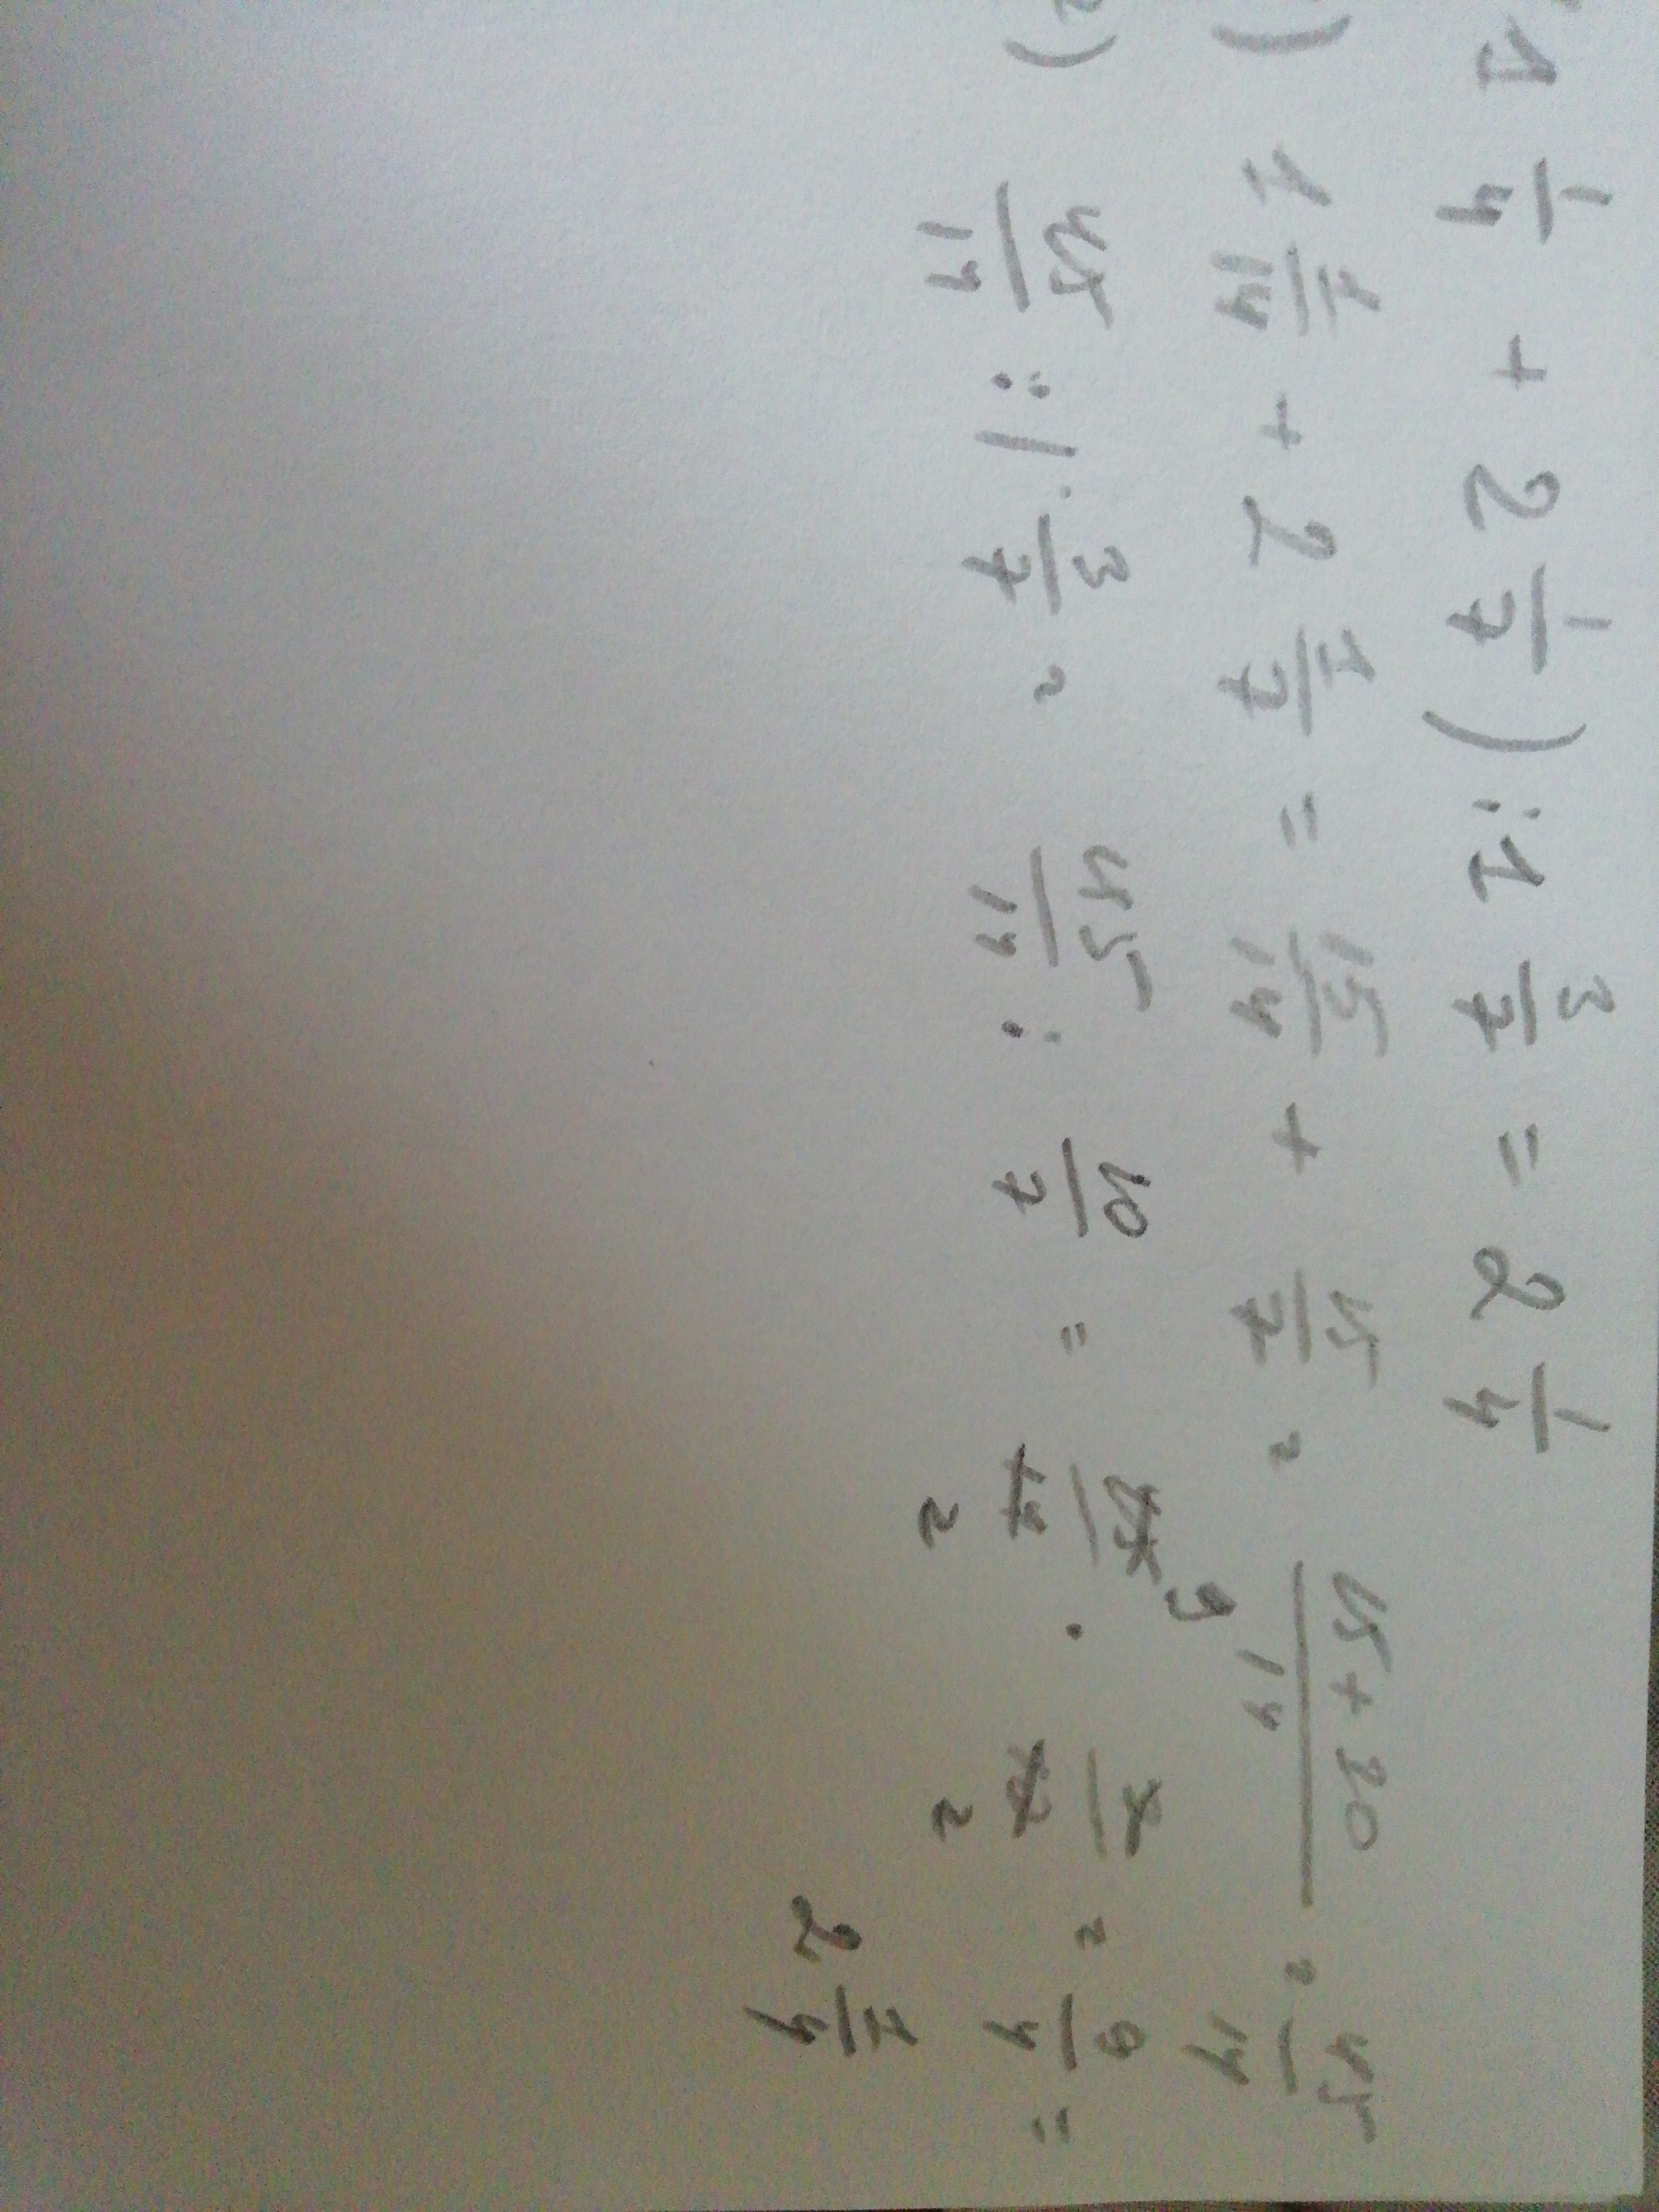 1 1/4 + 2 1/7) : 1 3/7 = 2 1/4
) 1 1/14 + 2 1/7 = 15/14 + 15/7 = 15+30/14 = 45/14
2) 45/14 : 1 3/7 = 45/14 : 10/7 = 45/14 9/2 · 7/10 /2 = 9/4 =
2 1/4